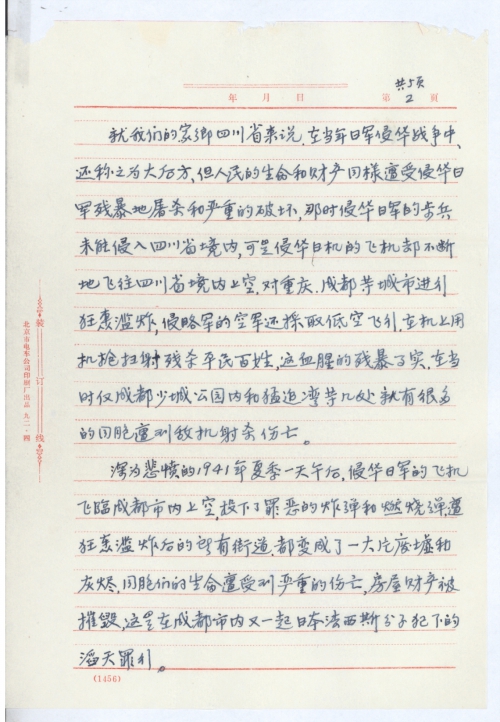 共5页
年 月 日 第 2 页
就我们的家鄉四川省来说，在当年日军侵华战争中，
还称之为大后方，但人民的生命和财产同樣遭受侵华日
军残暴地屠杀和严重的破坏，那时侵华日军的步兵
未能侵入四川省境内，可是侵华日机的飞机却不断
地飞往四川省境内上空，对重庆、成都等城市进行
狂轰滥炸，侵略军的空军还採取低空飞行，在机上用
机枪扫射残杀平民百姓，这血腥的残暴事实，在当
时仅成都少城公园内和猛追湾等几处就有很多
的同胞遭到敌机射杀伤亡。
深为悲愤的1941年夏季一天午后，侵华日军的飞机
飞臨成都市内上空，投下了罪恶的炸弹和燃烧弹，遭
狂轰滥炸后的所有街道都变成了一大片废墟和
灰烬，同胞们的生命遭受到严重的伤亡，房屋财产被
摧毁，这是在成都市内又一起日本法西斯分子犯下的
滔天罪行。
装 订 线
北京市电车公司印刷厂出品 九二·四
(1456)